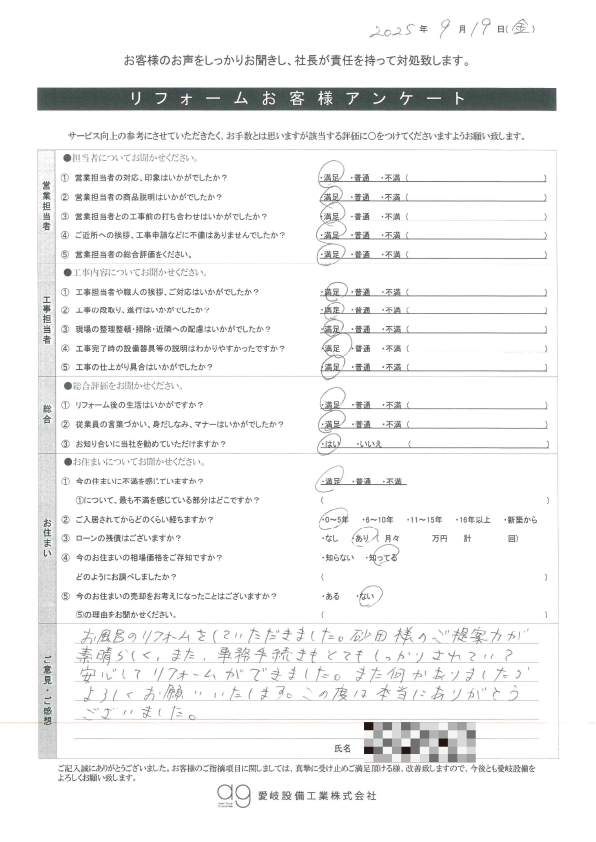 2025年 9月 19日(金)
お客様のお声をしっかりお聞きし、社長が責任を持って対処致します。
リフォームお客様アンケート
サービス向上の参考にさせていただきたく、お手数とは思いますが該当する評価に○をつけてくださいますようお願い致します。
営業担当者
●担当者についてお聞かせください。
① 営業担当者の対応、印象はいかがでしたか? ・満足 ・普通 ・不満 ( )
② 営業担当者の商品説明はいかがでしたか? ・満足 ・普通 ・不満 ( )
③ 営業担当者との工事前の打ち合わせはいかがでしたか? ・満足 ・普通 ・不満 ( )
④ ご近所への挨拶、工事申請などに不備はありませんでしたか? ・満足 ・普通 ・不満 ( )
⑤ 営業担当者の総合評価をください。 ・満足 ・普通 ・不満 ( )
工事担当者
●工事内容についてお聞かせください。
① 工事担当者や職人の挨拶、ご対応はいかがでしたか? ・満足 ・普通 ・不満 ( )
② 工事の段取り、進行はいかがでしたか? ・満足 ・普通 ・不満 ( )
③ 現場の整理整頓・掃除・近隣への配慮はいかがでしたか? ・満足 ・普通 ・不満 ( )
④ 工事完了時の設備器具等の説明はわかりやすかったですか? ・満足 ・普通 ・不満 ( )
⑤ 工事の仕上がり具合はいかがでしたか? ・満足 ・普通 ・不満 ( )
総合
●総合評価をお聞かせください。
① リフォーム後の生活はいかがですか? ・満足 ・普通 ・不満 ( )
② 従業員の言葉づかい、身だしなみ、マナーはいかがでしたか? ・満足 ・普通 ・不満 ( )
③ お知り合いに当社を勧めていただけますか? ・はい ・いいえ ( )
お住まい
●お住まいについてお聞かせください。
① 今の住まいに不満を感じていますか? ・満足 ・普通 ・不満
①について、最も不満を感じている部分はどこですか? ( )
② ご入居されてからどのくらい経ちますか? ・0~5年 ・6~10年 ・11~15年 ・16年以上 ・新築から
③ ローンの残債はございますか? ・なし ・あり( 月々 万円 計 回)
④ 今のお住まいの相場価格をご存知ですか? ・知らない ・知ってる
どのようにお調べしましたか? ( )
⑤ 今のお住まいの売却をお考えになったことはございますか? ・ある ・ない
⑤の理由をお聞かせください。 ( )
ご意見・ご感想
お風呂のリフォームをしていただきました。砂田様のご提案力が
素晴らしく、また、事務手続きもとてもしっかりされていて
安心してリフォームができました。また何かありましたら
よろしくお願いいたします。この度は本当にありがとう
ございました。
氏名
ご記入誠にありがとうございました。お客様のご指摘項目に関しましては、真摯に受け止めご満足頂ける様、改善致しますので、今後とも愛岐設備を
よろしくお願い致します。
ag 愛岐設備工業株式会社